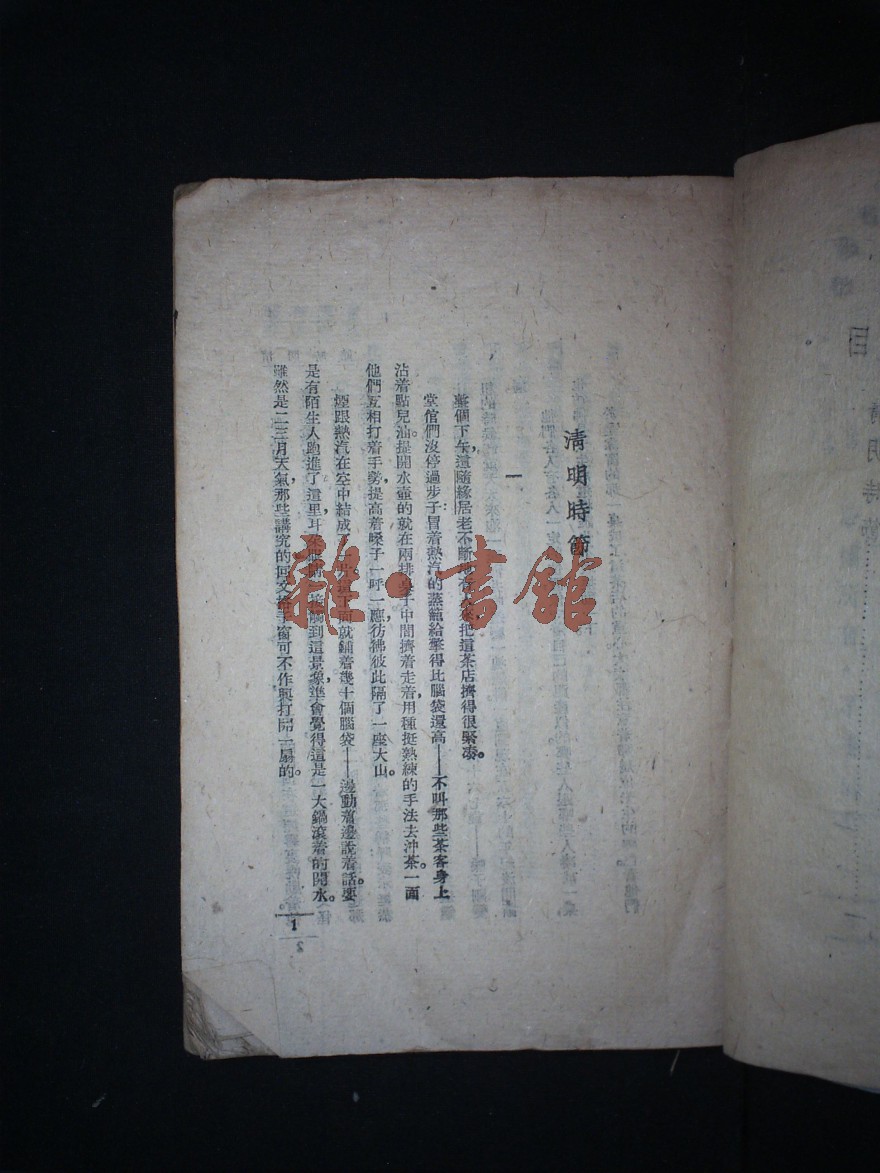 目
清明時節
清明時節
一
整個下午，這隨緣居老不斷把這茶店擠得很緊湊。
堂倌們沒停過步子：冒着熱汽的蒸籠給擎得比腦袋還高——不叫那些茶客身上
沾着點兒油。提開水壺的就在兩排桌子中間擠着走着，用種挺熟練的手法去沖茶。一面
他們互相打着手勢，提高着嗓子一呼一應，彷彿彼此隔了一座大山。
煙跟熱汽在空中結成一片。下面就鋪着幾十個腦袋——邊動着邊說着話。要
是有陌生人跑進了這里，耳朵眼睛一接觸到這景象，準會覺得這是一大鍋滾着的開水。
雖然是二三月天氣，那些講究的回文格子窗可不作興打開一扇的。
1
雜·書館